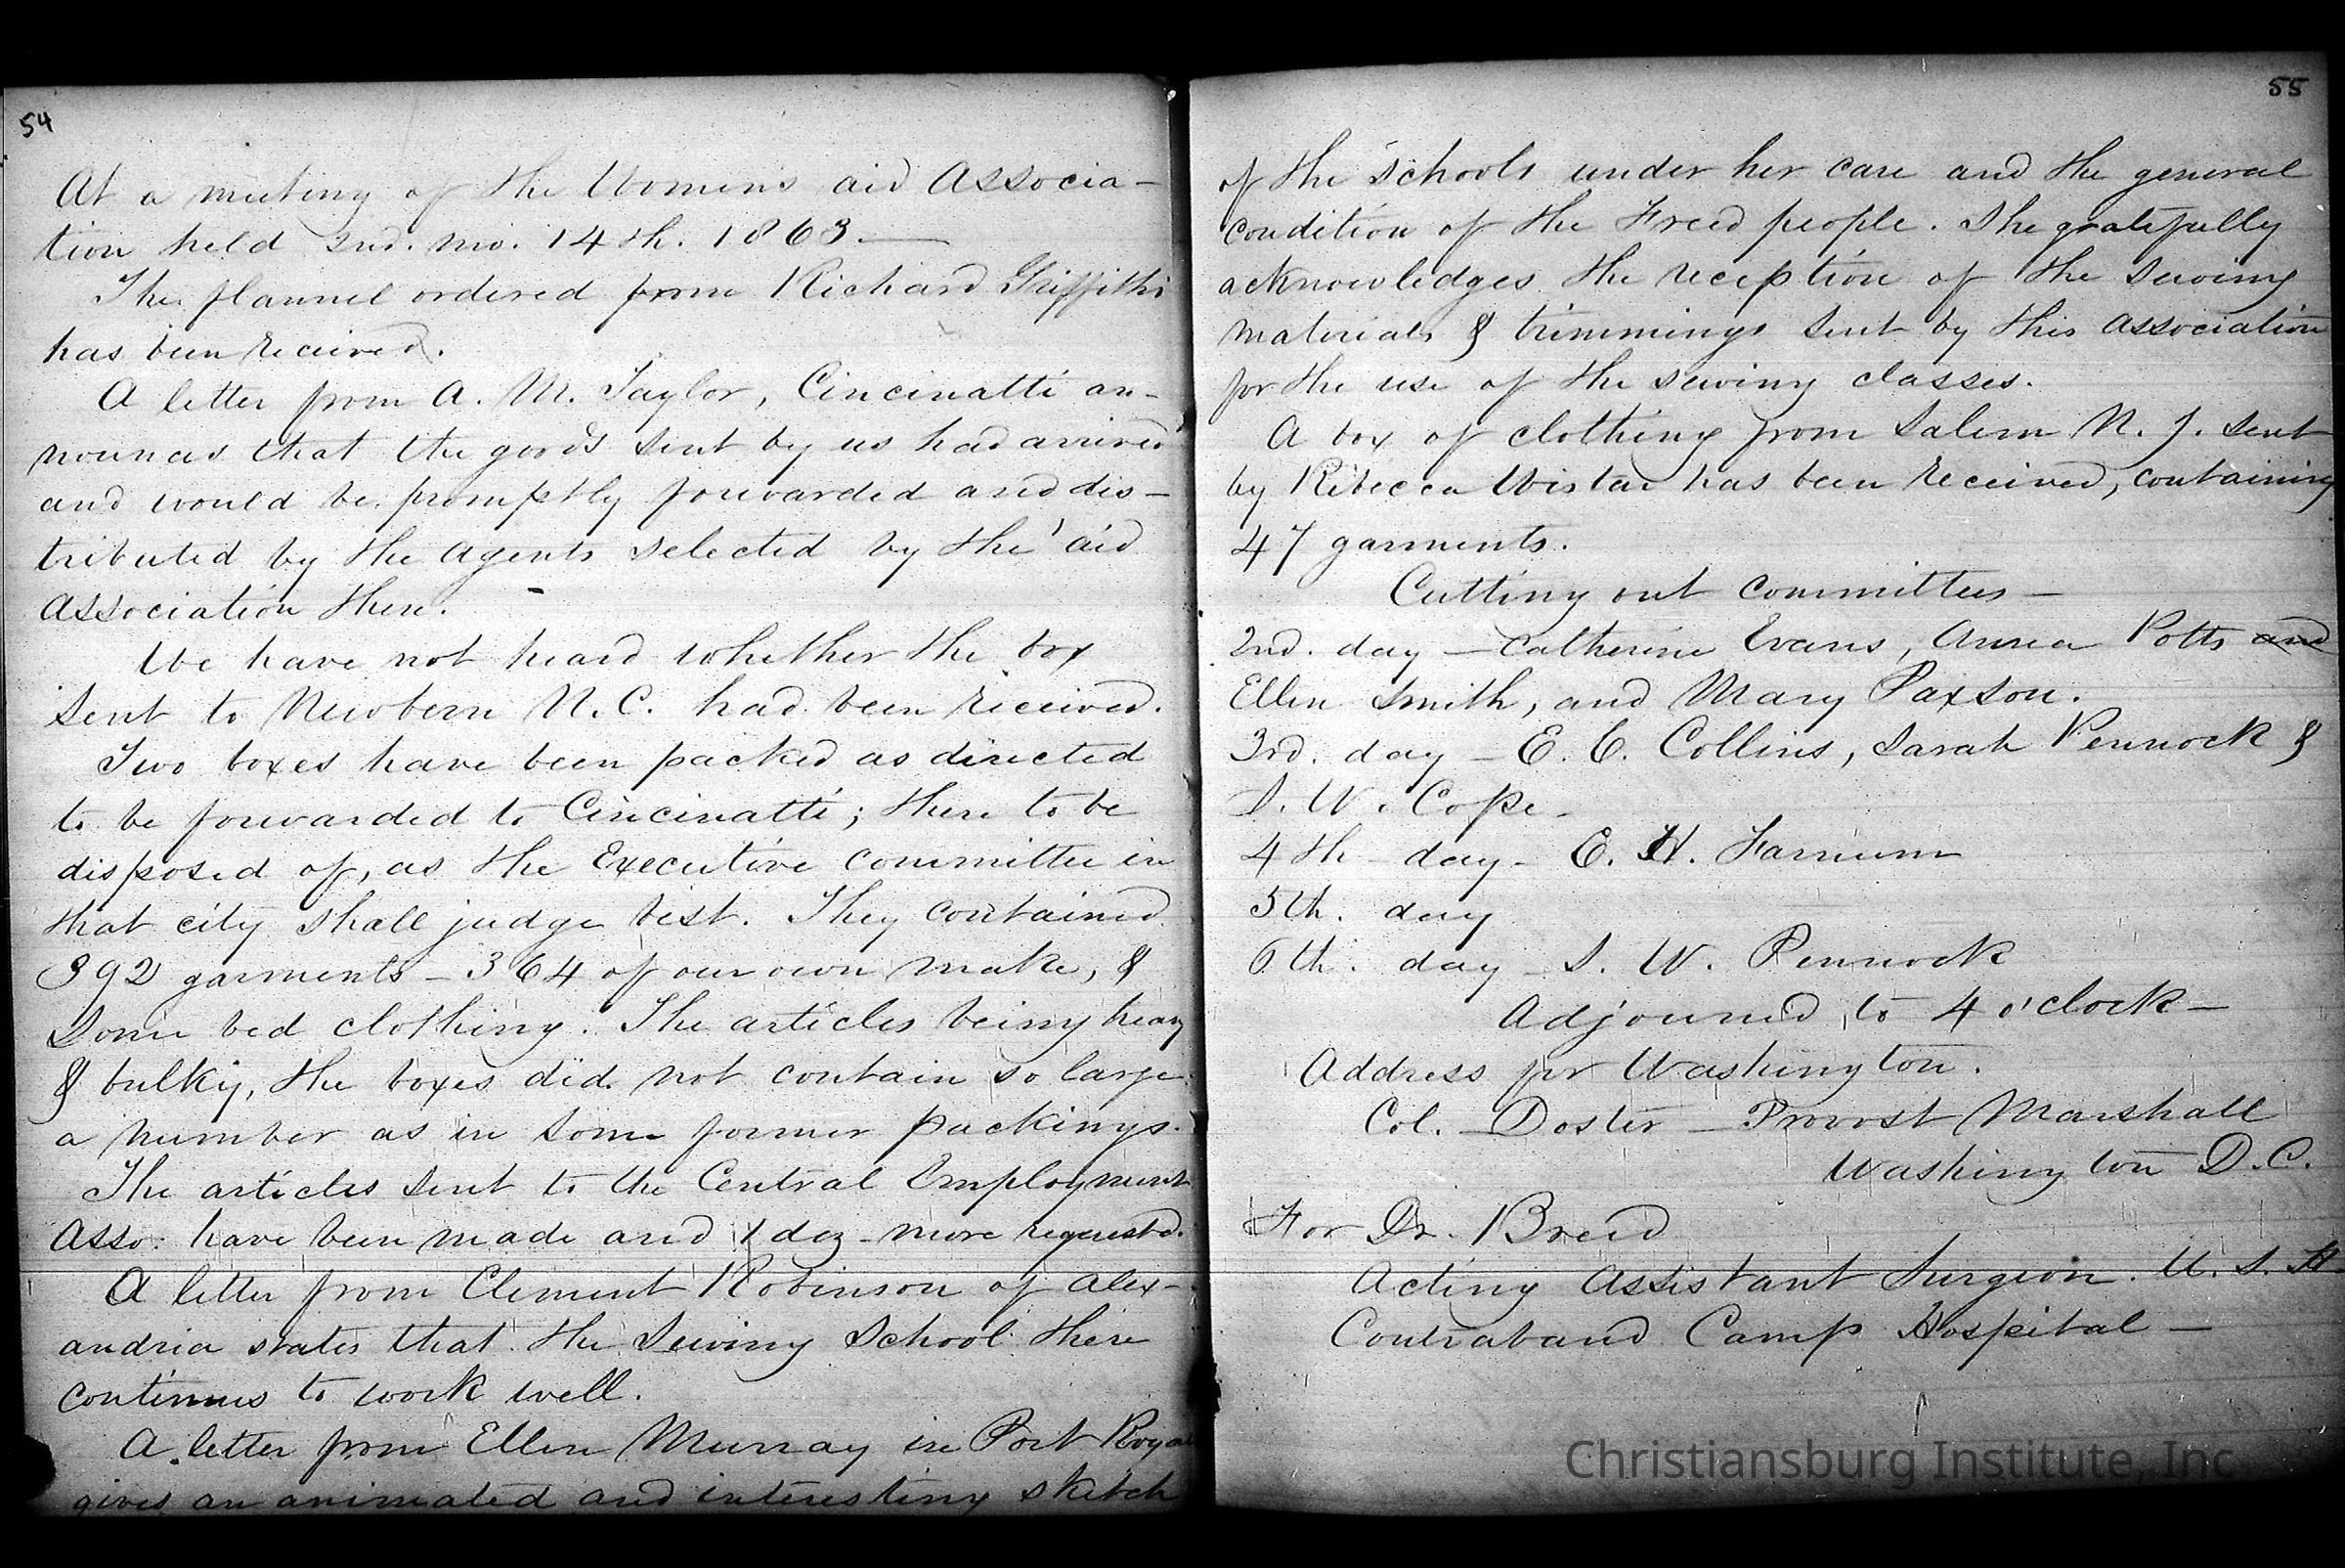 54
At a meeting of the Women's aid Associa-
tion held 2nd. mo. 14th. 1863.—
The flannel ordered from Richard Griffiths
has been received.
A letter from A. M. Taylor, Cincinatti an-
nounces that the goods sent by us had arrived
and would be promptly forwarded and dis-
tributed by the agents selected by the aid
Association there.
We have not heard whether the box
sent to Newbern N.C. had been received.
Two boxes have been packed as directed
to be forwarded to Cincinatti; there to be
disposed of, as the Executive committee in
that city shall judge best. They contained
392 garments - 364 of our own make, &
some bed clothing. The articles being heavy
& bulky, the boxes did not contain so large
a number as in some former packings.
The articles sent to the Central Employment
Asso: have been made and 1 doz - more requested.
A letter from Clement Robinson of Alex-
andria states that the Sewing School there
continues to work well.
A letter from Ellen Murray in Port Royal
gives an animated and interesting sketch
55
of the schools under her care and the general
condition of the Freed people. She gratefully
acknowledges the reception of the sewing
materials & trimmings sent by this association
for the use of the sewing classes.
A box of clothing from Salem N. J. sent
by Rebecca Wistar has been received, containing
47 garments.
Cutting out committees —
2nd. day — Catherine Evans, Anna Potts and
Ellen Smith, and Mary Paxson.
3rd. day — E. C. Collins, Sarah Pennock &
S. W. Cope -
4th day - E. H. Farnum
5th. day
6th. day - S. W. Pennock
Adjourned to 4 o'clock —
Address for Washington.
Col. Doster — Provost Marshall
Washington D.C.
For Dr. Breed
Acting Assistant Surgeon. U. S. A.
Contraband Camp Hospital —
Christiansburg Institute, Inc